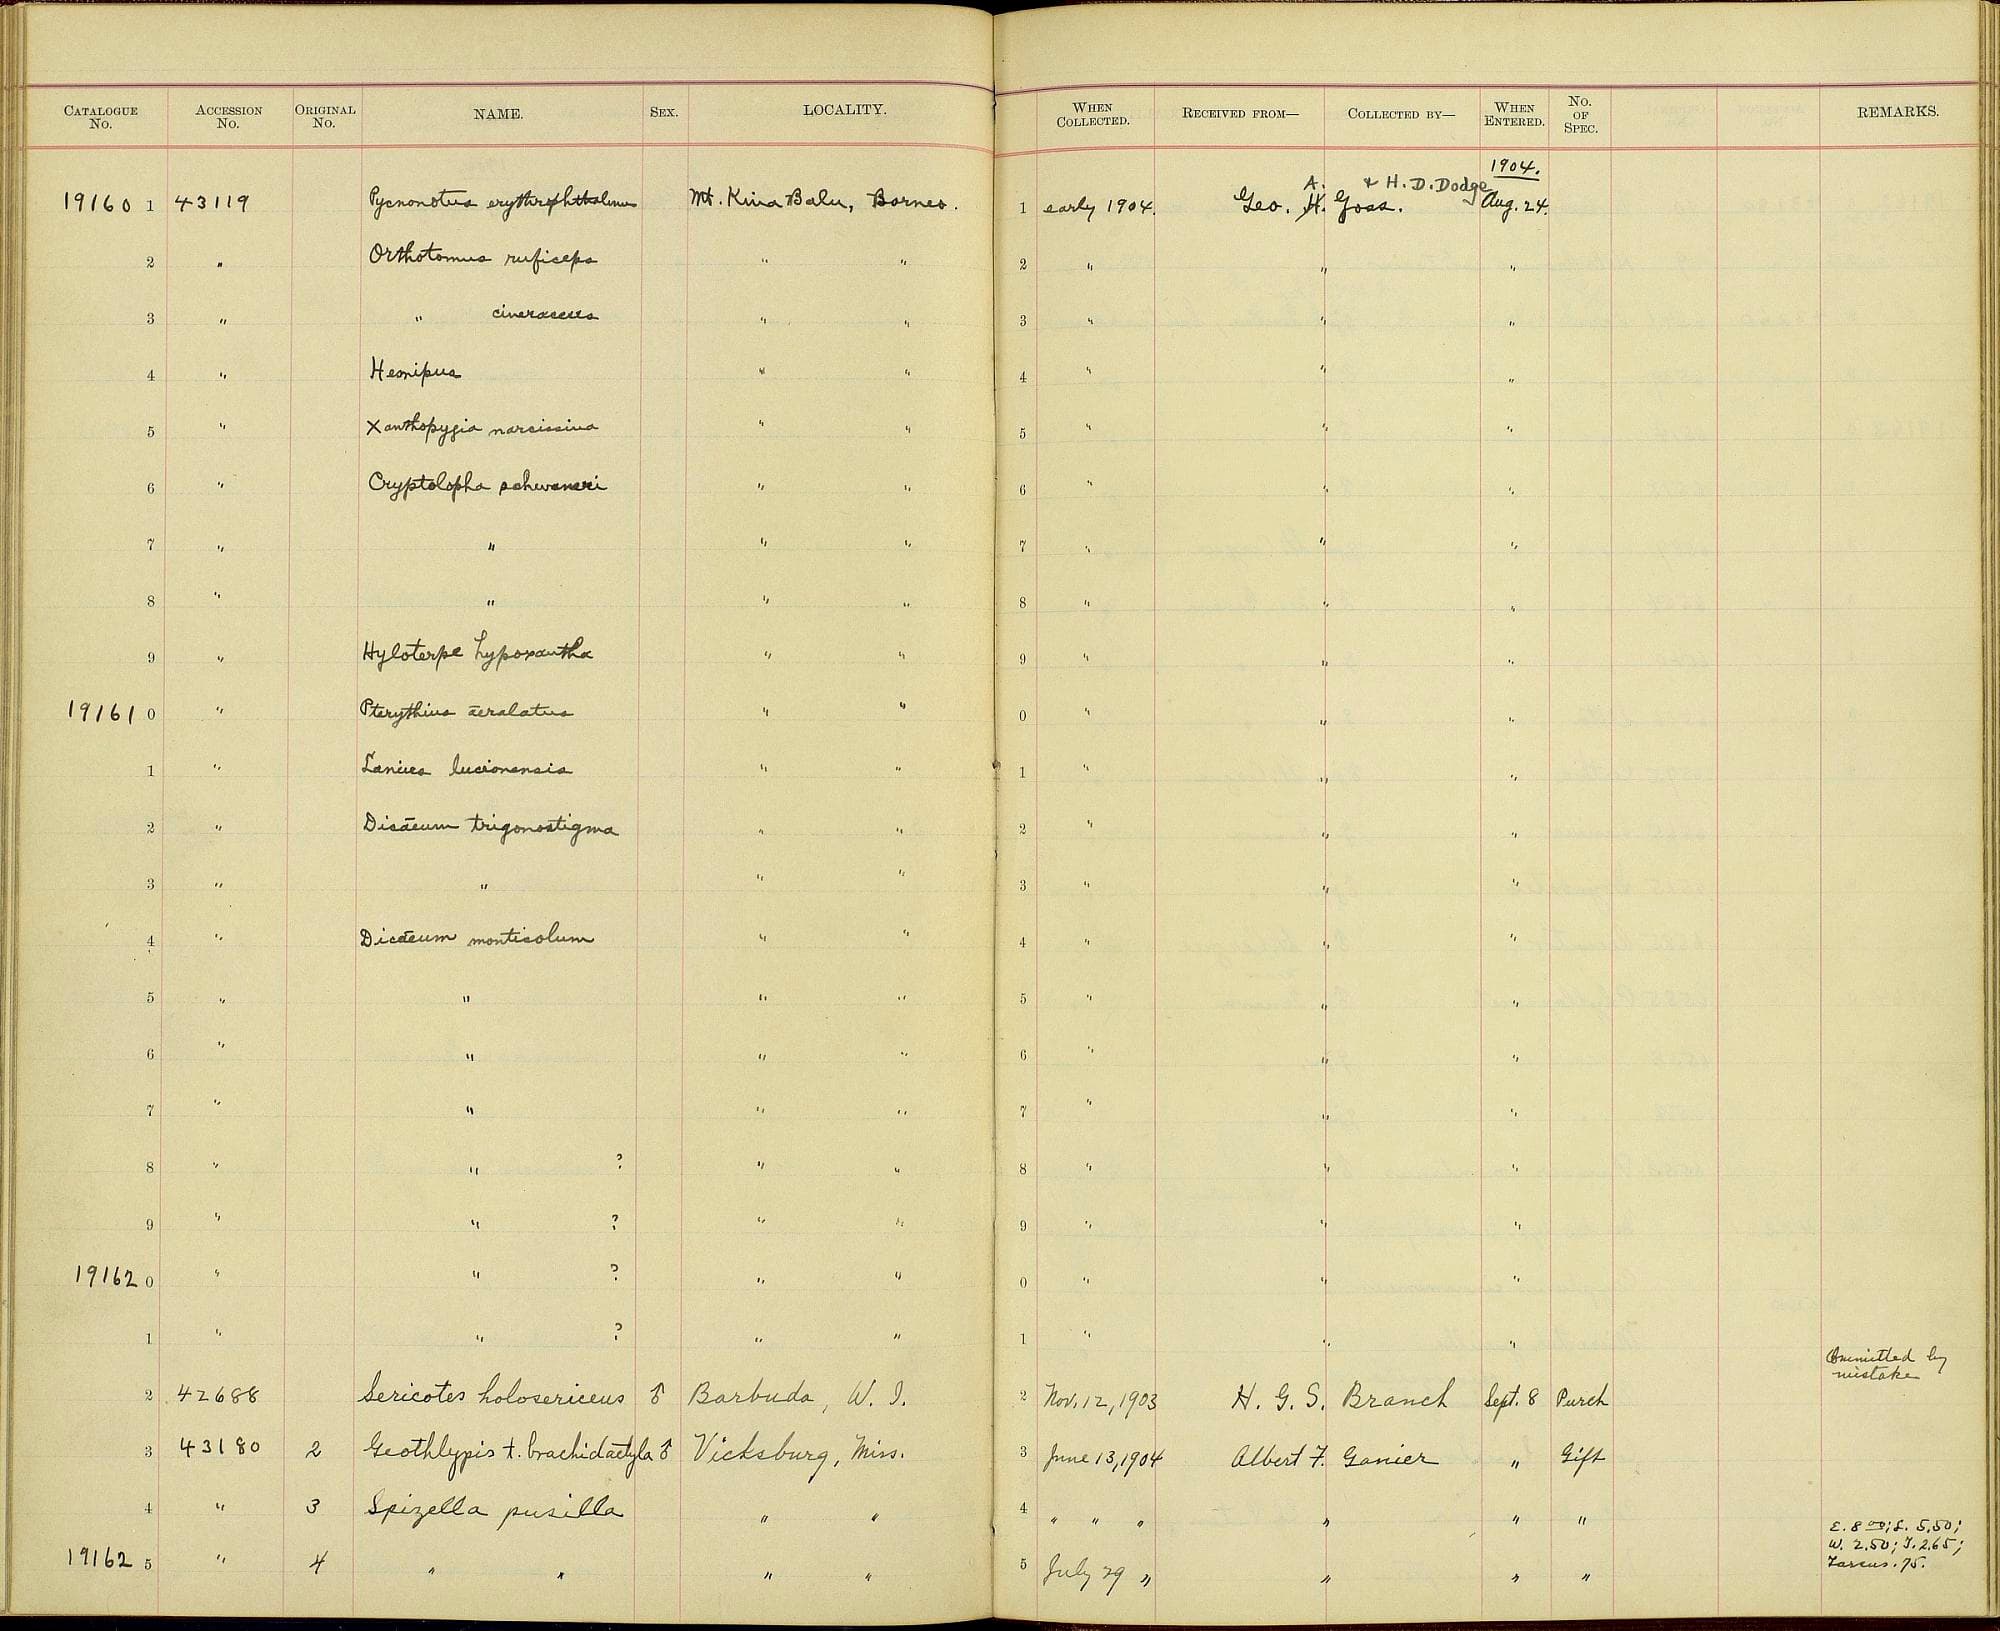 CATALOGUE No. ACCESSION No. ORIGINAL No. NAME. SEX. LOCALITY. WHEN COLLECTED. RECEIVED FROM— COLLECTED BY— WHEN ENTERED. No. OF SPEC. REMARKS.
1904.
A. & H. D. Dodge
19160 1 43119 Pycnonotus erythrophthalmus Mt. Kina Balu, Borneo. 1 early 1904. Geo. H. Goss. Aug. 24.
2 " Orthotomus ruficeps " " 2 " " "
3 " " cineraceus " " 3 " " "
4 " Hemipus " " 4 " " "
5 " Xanthopygia narcissina " " 5 " " "
6 " Cryptolopha schwaneri " " 6 " " "
7 " " " " 7 " " "
8 " " " " 8 " " "
9 " Hyloterpe hypoxantha " " 9 " " "
19161 0 " Pterythius aeralatus " " 0 " " "
1 " Lanius lucionensis " " 1 " " "
2 " Dicaeum trigonostigma " " 2 " " "
3 " " " " 3 " " "
4 " Dicaeum monticolum " " 4 " " "
5 " " " " 5 " " "
6 " " " " 6 " " "
7 " " " " 7 " " "
8 " " ? " " 8 " " "
9 " " ? " " 9 " " "
19162 0 " " ? " " 0 " " "
1 " " ? " " 1 " " "
Ommitted by
mistake
2 42688 Sericotes holosericeus ♂ Barbuda, W. I. 2 Nov. 12, 1903 H. G. S. Branch Sept. 8 Purch
3 43180 2 Geothlypis t. brachidactyla ♂ Vicksburg, Miss. 3 June 13, 1904 Albert F. Ganier " Gift
4 " 3 Spizella pusilla " " 4 " " " " " "
E. 8 00; L. 5.50;
W. 2.50; T. 2.65;
Tarsus .75.
19162 5 " 4 " " " " 5 July 29 " " " "